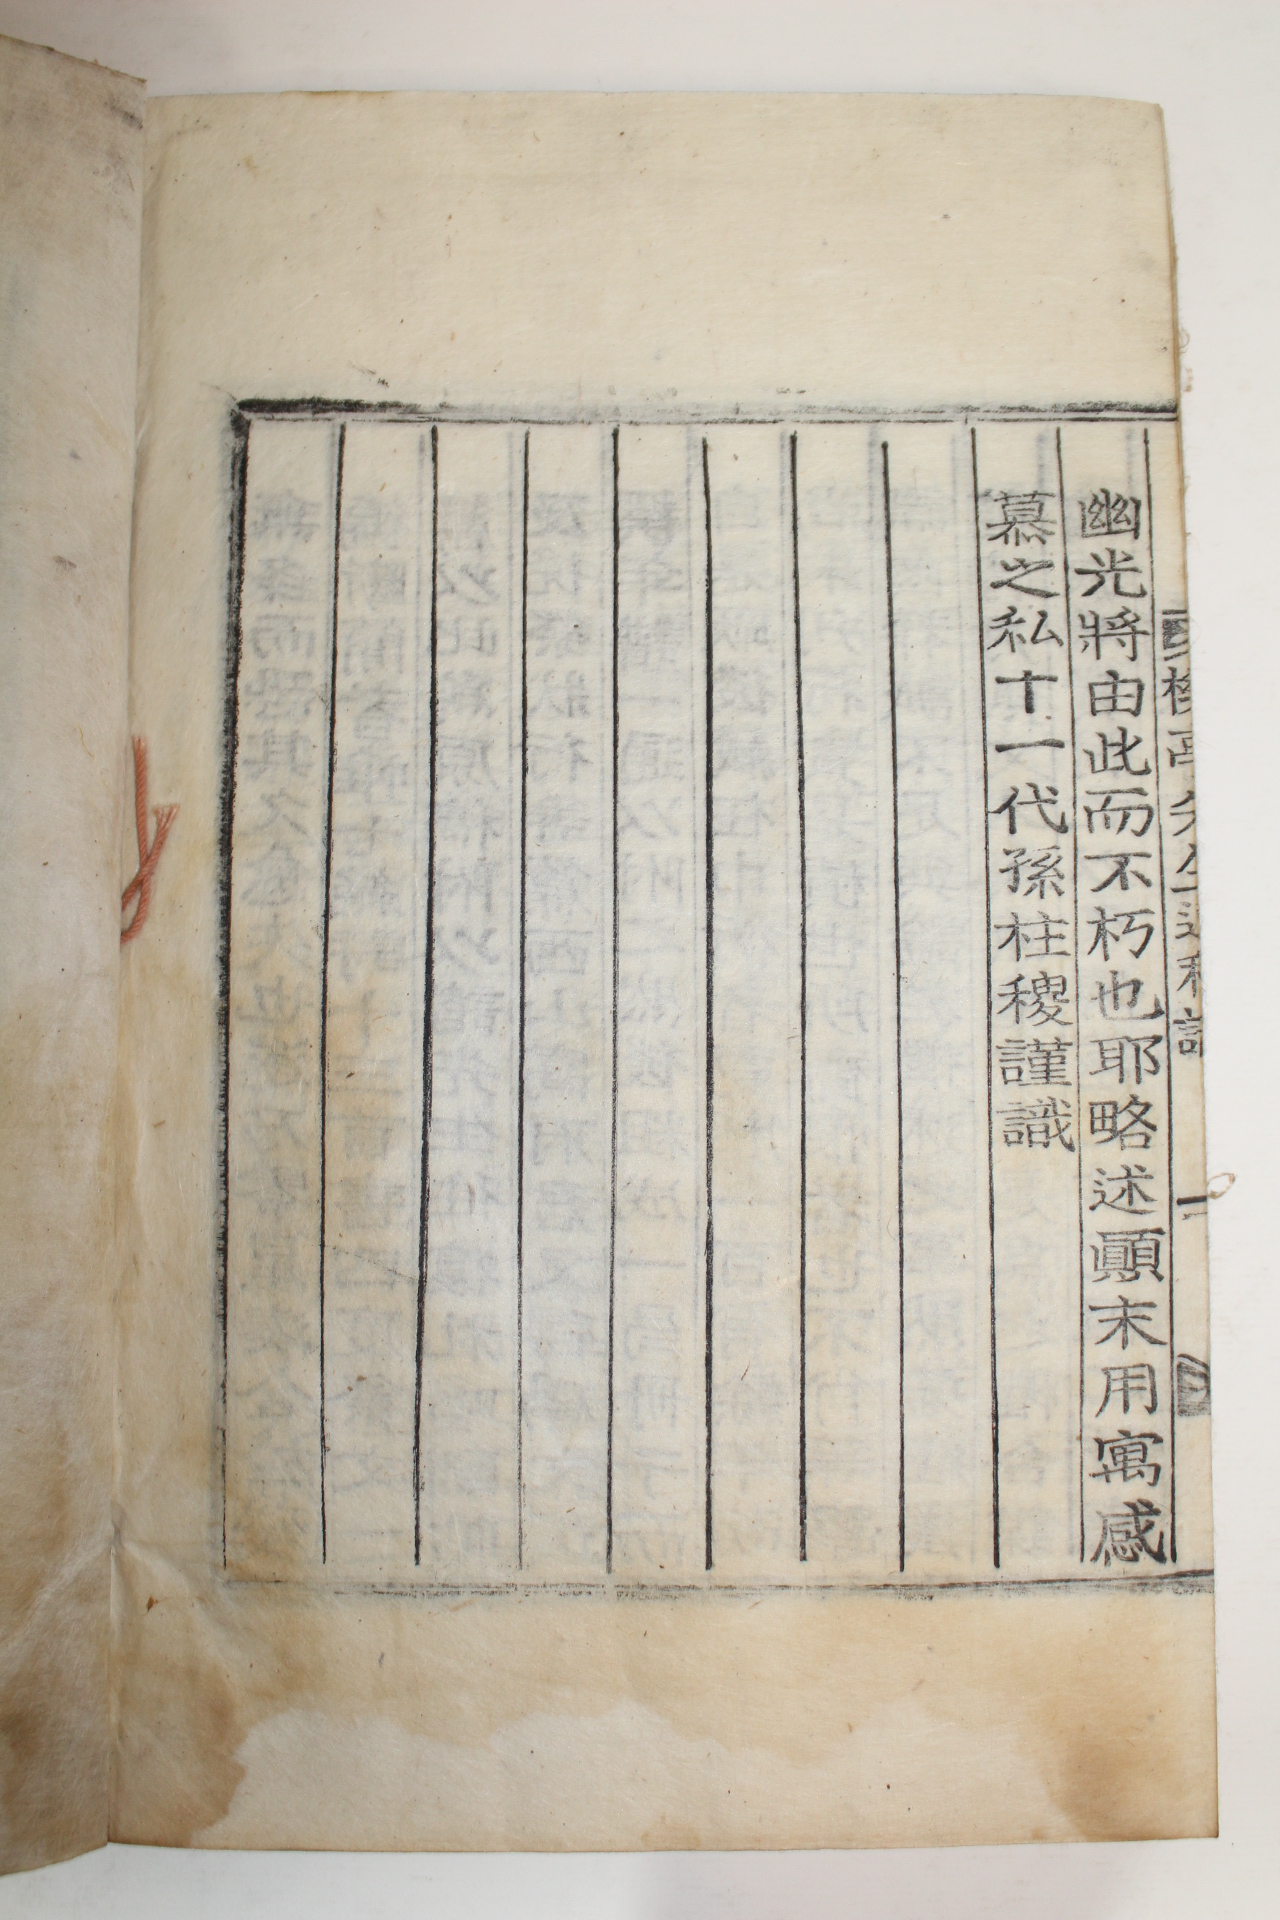 幽光將由此而不朽也耶略述顚末用寓感
慕之私十一代孫柱稷謹識